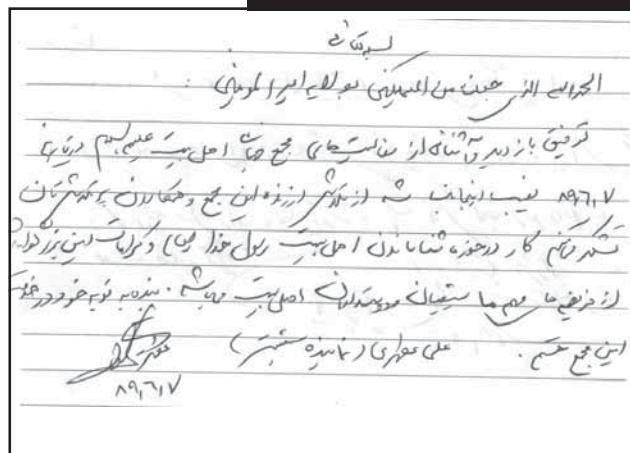 بسمه تعالی
الحمدلله الذی جعلنا من المتمسکین بولایه امیرالمومنین
توفیق بازدید و آشنائی از فعالیت‌های مجمع جهانی اهل بیت علیهم السلام در تاریخ
۸۹،۶،۷ نصیب اینجانب شد از تلاش ارزنده این مجمع و همکاران پرتلاش‌تان
تشکر میکنم کار در حوزه شناساندن اهل بیت رسول خدا (ص) و کرامات این بزرگواران
از فریضه‌های مهم ما شیعیان و دوستداران اهل بیت میباشد. بنده به نوبه خود در خدمت
این مجمع هستم. علی مطهری (نماینده شبستر)
۸۹،۶،۷